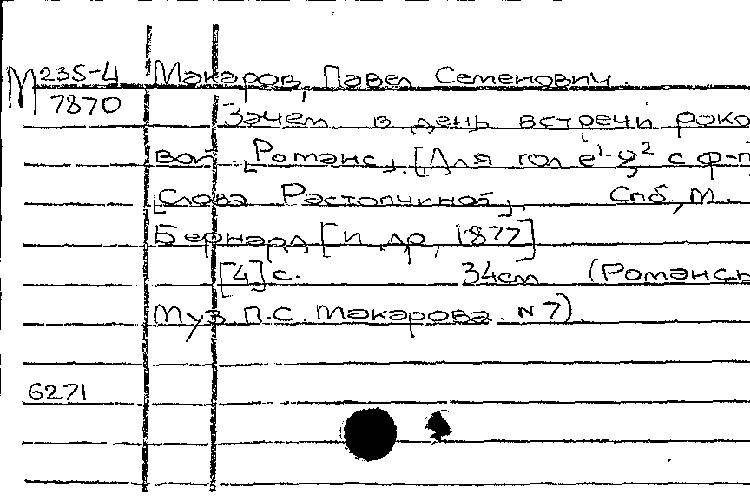 М 235-4 Макаров, Павел Семенович.
7870 Зачем в день встречи роко
вой [Романс]. [Для гол. e¹-g² с ф-п]
[Слова Растопчиной]. Спб, М.
Бернард [и др, 1877]
[4] с. 34см (Романсы
муз. П.С. Макарова № 7).
6271